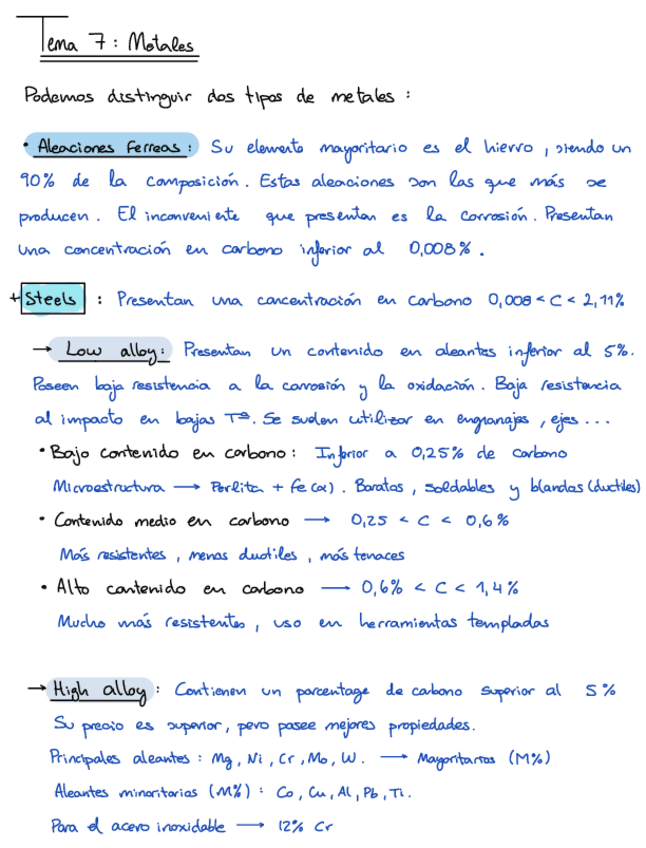 Tema 7: Metales
Podemos distinguir dos tipos de metales :
• Aleaciones Ferreas : Su elemento mayoritario es el hierro, siendo un
90% de la composición. Estas aleaciones son las que más se
producen. El inconveniente que presentan es la corrosión. Presentan
una concentración en carbono inferior al 0,008%.
+ Steels : Presentan una concentración en carbono 0,008 < C < 2,11%
→ Low alloy : Presentan un contenido en aleantes inferior al 5%.
Poseen baja resistencia a la corrosión y la oxidación. Baja resistencia
al impacto en bajas Tª. Se suelen utilizar en engranajes, ejes ...
• Bajo contenido en carbono : Inferior a 0,25% de carbono
Microestructura → Perlita + Fe(α). Baratas, soldables y blandas (ductiles)
• Contenido medio en carbono → 0,25 < C < 0,6%
Más resistentes, menos ductiles, más tenaces
• Alto contenido en carbono → 0,6% < C < 1,4%
Mucho más resistentes, uso en herramientas templadas
→ High alloy : Contienen un porcentage de carbono superior al 5%
Su precio es superior, pero posee mejores propiedades.
Principales aleantes : Mg, Ni, Cr, Mo, W. → Mayoritarios (M%)
Aleantes minoritarios (M%) : Co, Cu, Al, Pb, Ti.
Para el acero inoxidable → 12% Cr